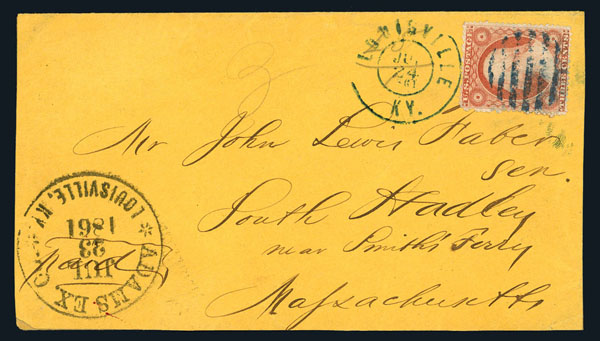 LOUISVILLE
JUL
24
1861
KY.
U.S. POSTAGE
THREE CENTS
Mr John Lewis Faber
Sen.
South Hadley
near Smith's Ferry
Massachusetts
* ADAMS EX. CO.
LOUISVILLE, KY
JUL
23
1861